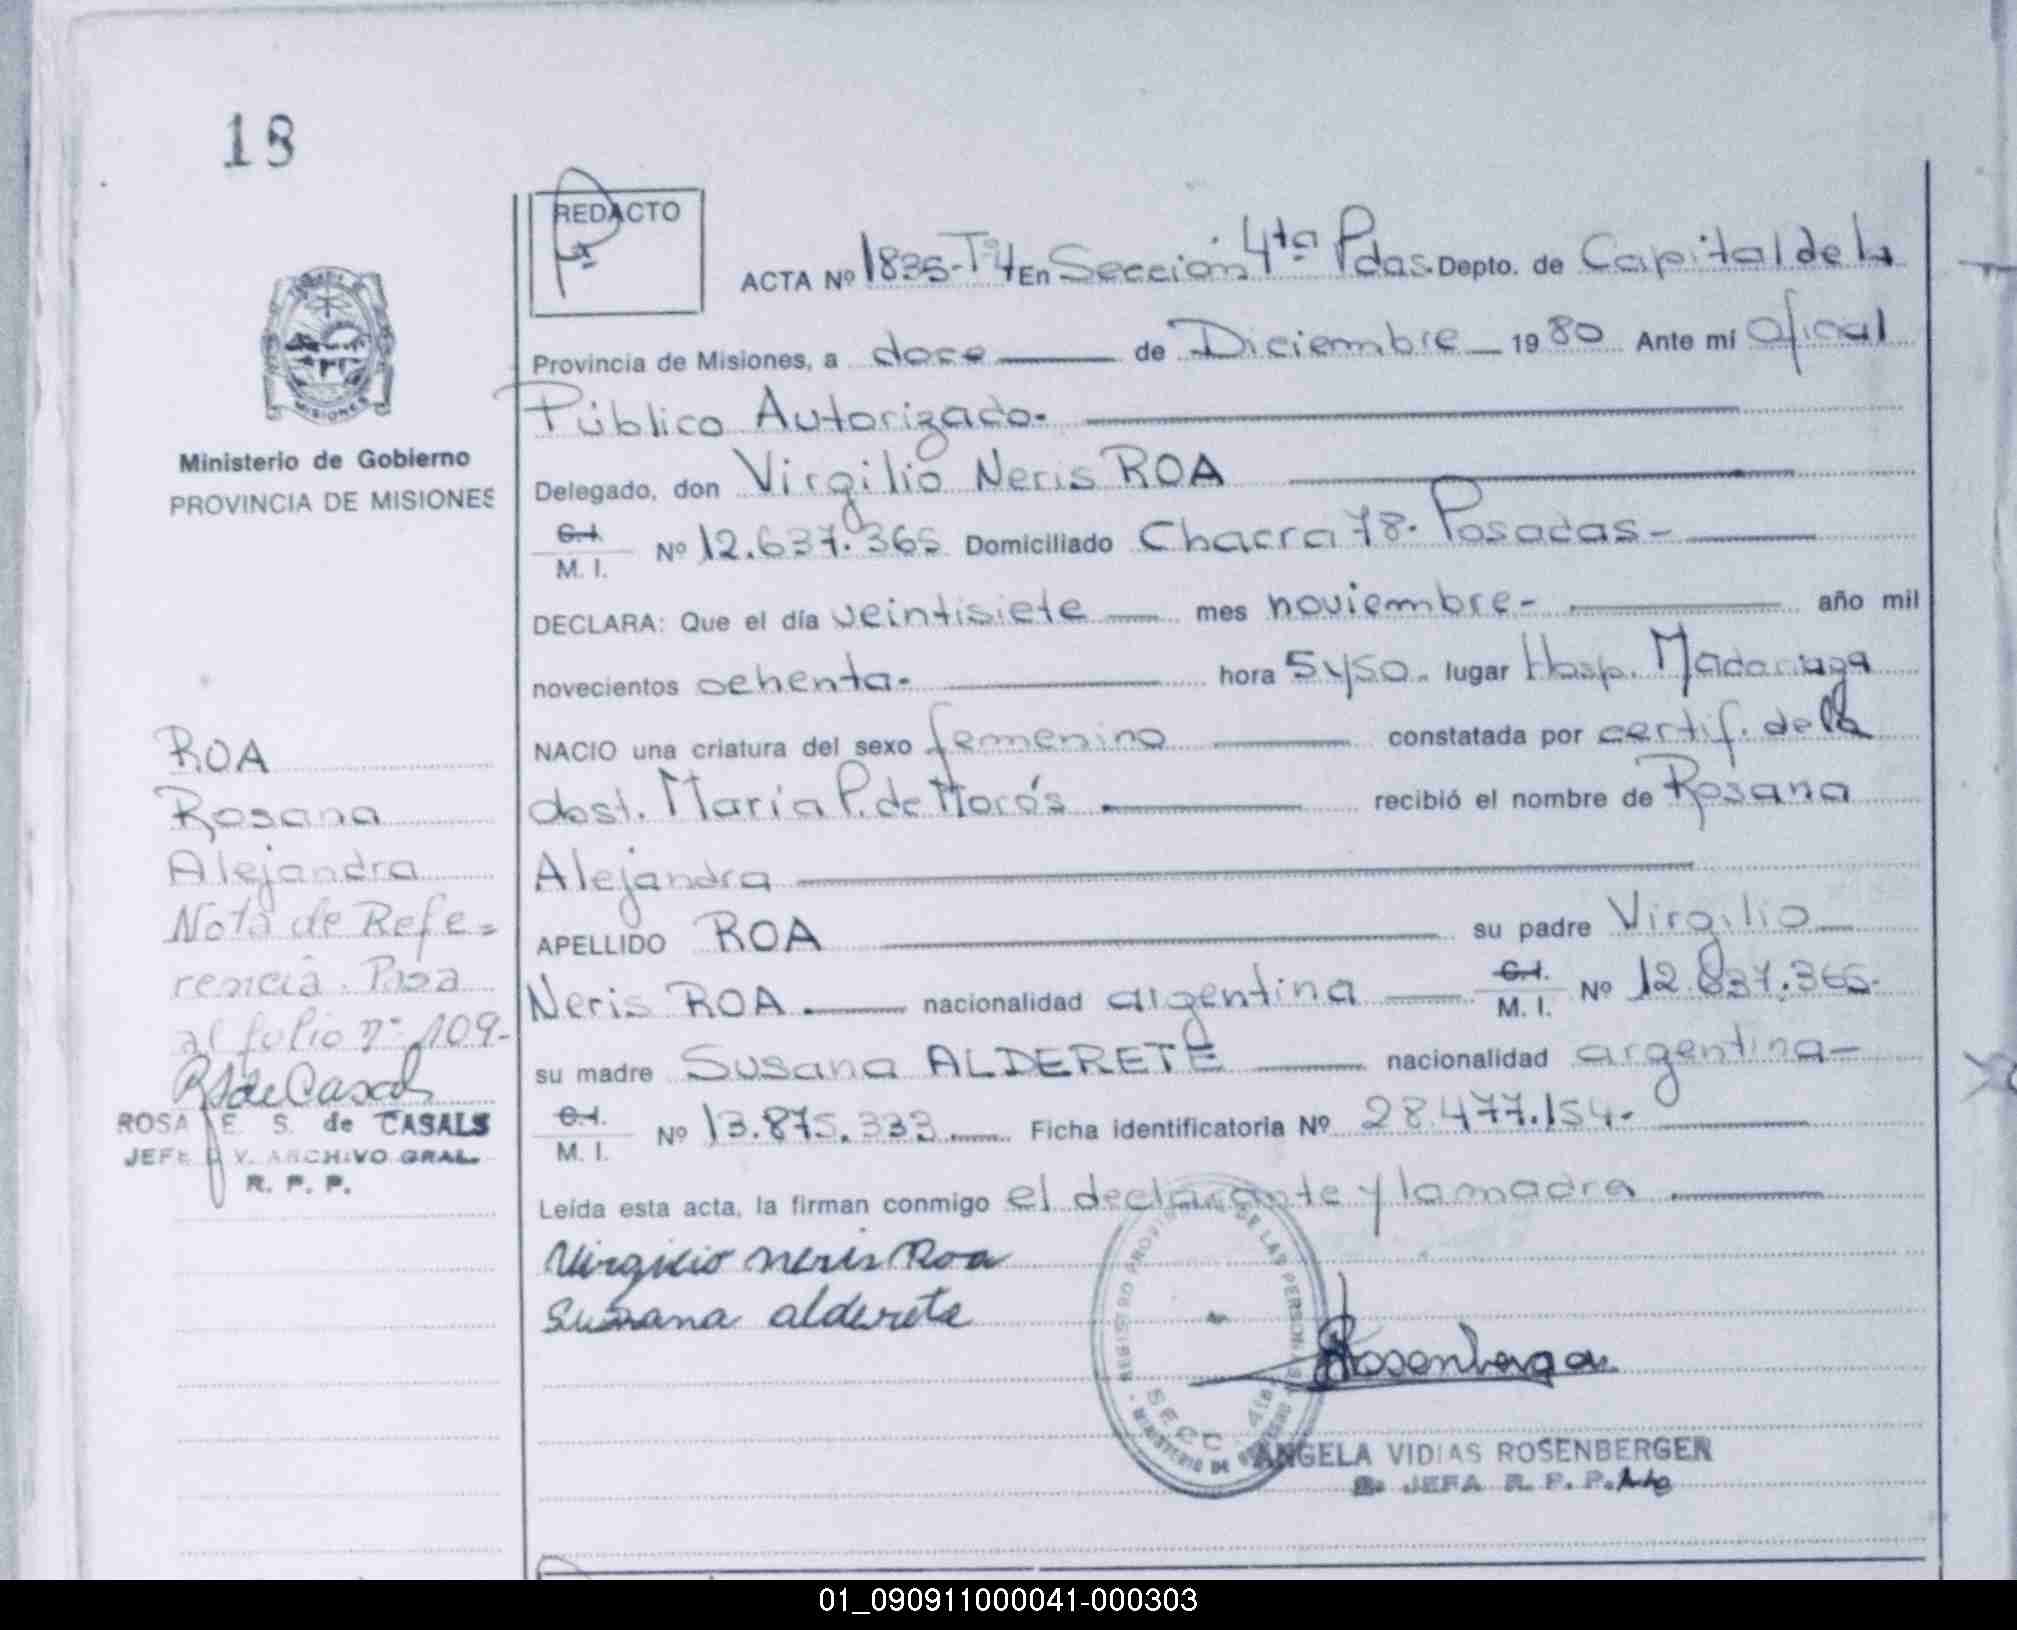 18
REDACTO
ACTA Nº 1835-Tº4 En Sección 4ta Pdas. Depto. de Capital de la
Provincia de Misiones, a doce de Diciembre 1980 Ante mí Oficial
Público Autorizado.
Delegado, don Virgilio Neris ROA
C.I.
M. I. Nº 12.637.365 Domiciliado Chacra 78. Posadas-
DECLARA: Que el día veintisiete mes noviembre- año mil
novecientos ochenta- hora 5 y 50. lugar Hosp. Madariaga
NACIO una criatura del sexo femenino constatada por certif. de la
obst. María P. de Morós recibió el nombre de Rosana
Alejandra
APELLIDO ROA su padre Virgilio
Neris ROA. nacionalidad argentina C.I.
M. I. Nº 12.837.365-
su madre Susana ALDERETE nacionalidad argentina-
C.I.
M. I. Nº 13.875.333 Ficha identificatoria Nº 28.477.154-
Leída esta acta, la firman conmigo el declarante y la madre
Virgilio neris Roa
Susana alderete
Rosenberger
REGISTRO PROVINCIAL DE LAS PERSONAS
SECC. 4ta
MINISTERIO DE GOBIERNO
ANGELA VIDIAS ROSENBERGER
JEFA R. P. P.
MISIONES
Ministerio de Gobierno
PROVINCIA DE MISIONES
ROA
Rosana
Alejandra
Nota de Refe=
rencia. Pasa
al folio nº 109-
RS de Casals
ROSA E. S. de CASALS
JEFE DIV. ARCHIVO GRAL.
R. P. P.
01_090911000041-000303